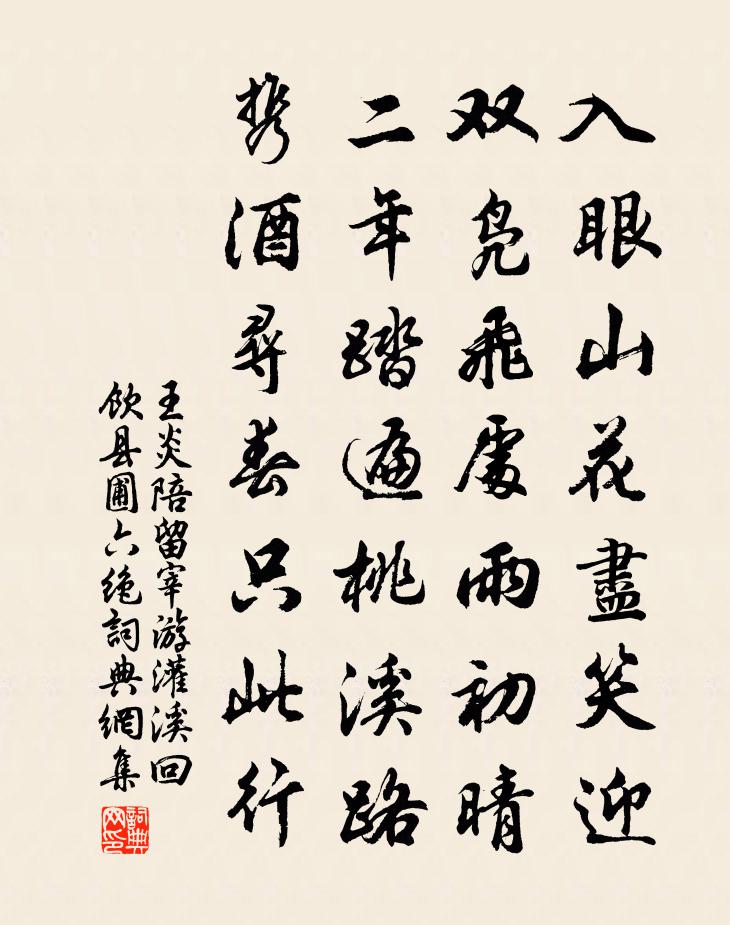 入眼山花盡笑迎
双凫飛處雨初晴
二年踏遍桃溪路
携酒尋春只此行
王炎陪留宰游灌溪回
飲县圃六绝詞典網集
詞典
网印